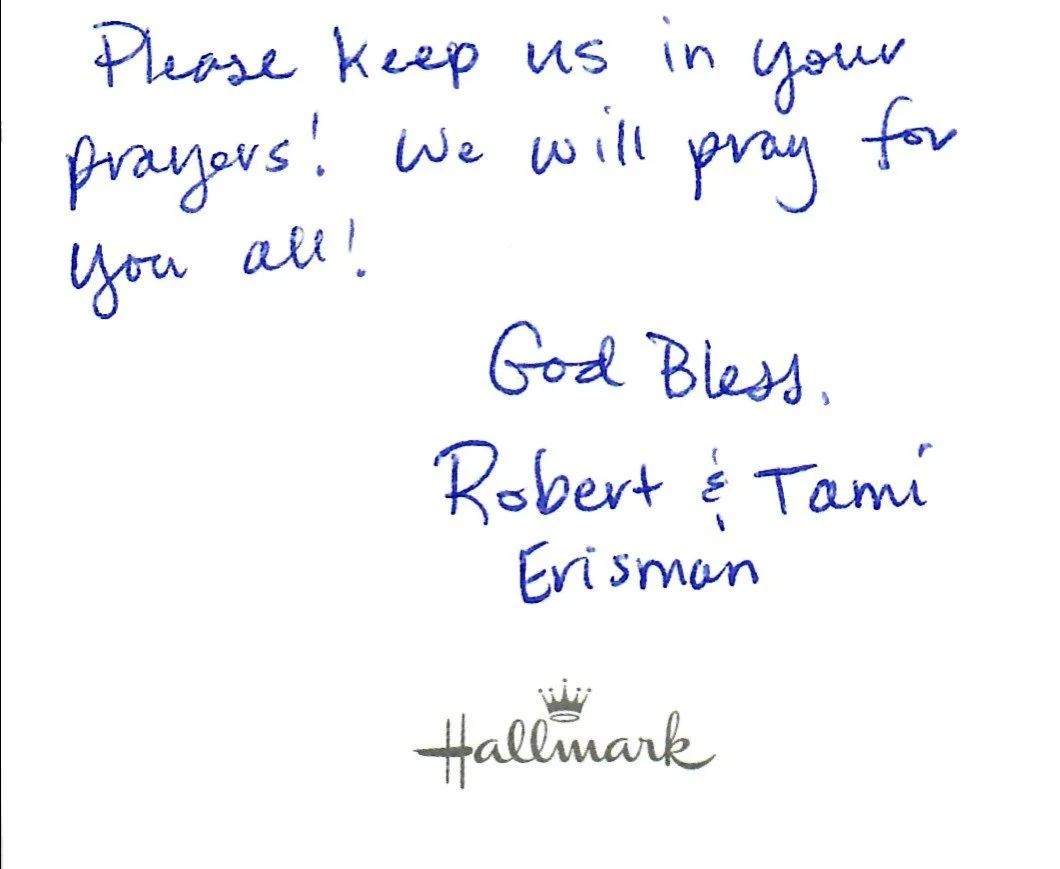 Please keep us in your
prayers! We will pray for
you all!
God Bless,
Robert & Tami
Erisman
Hallmark